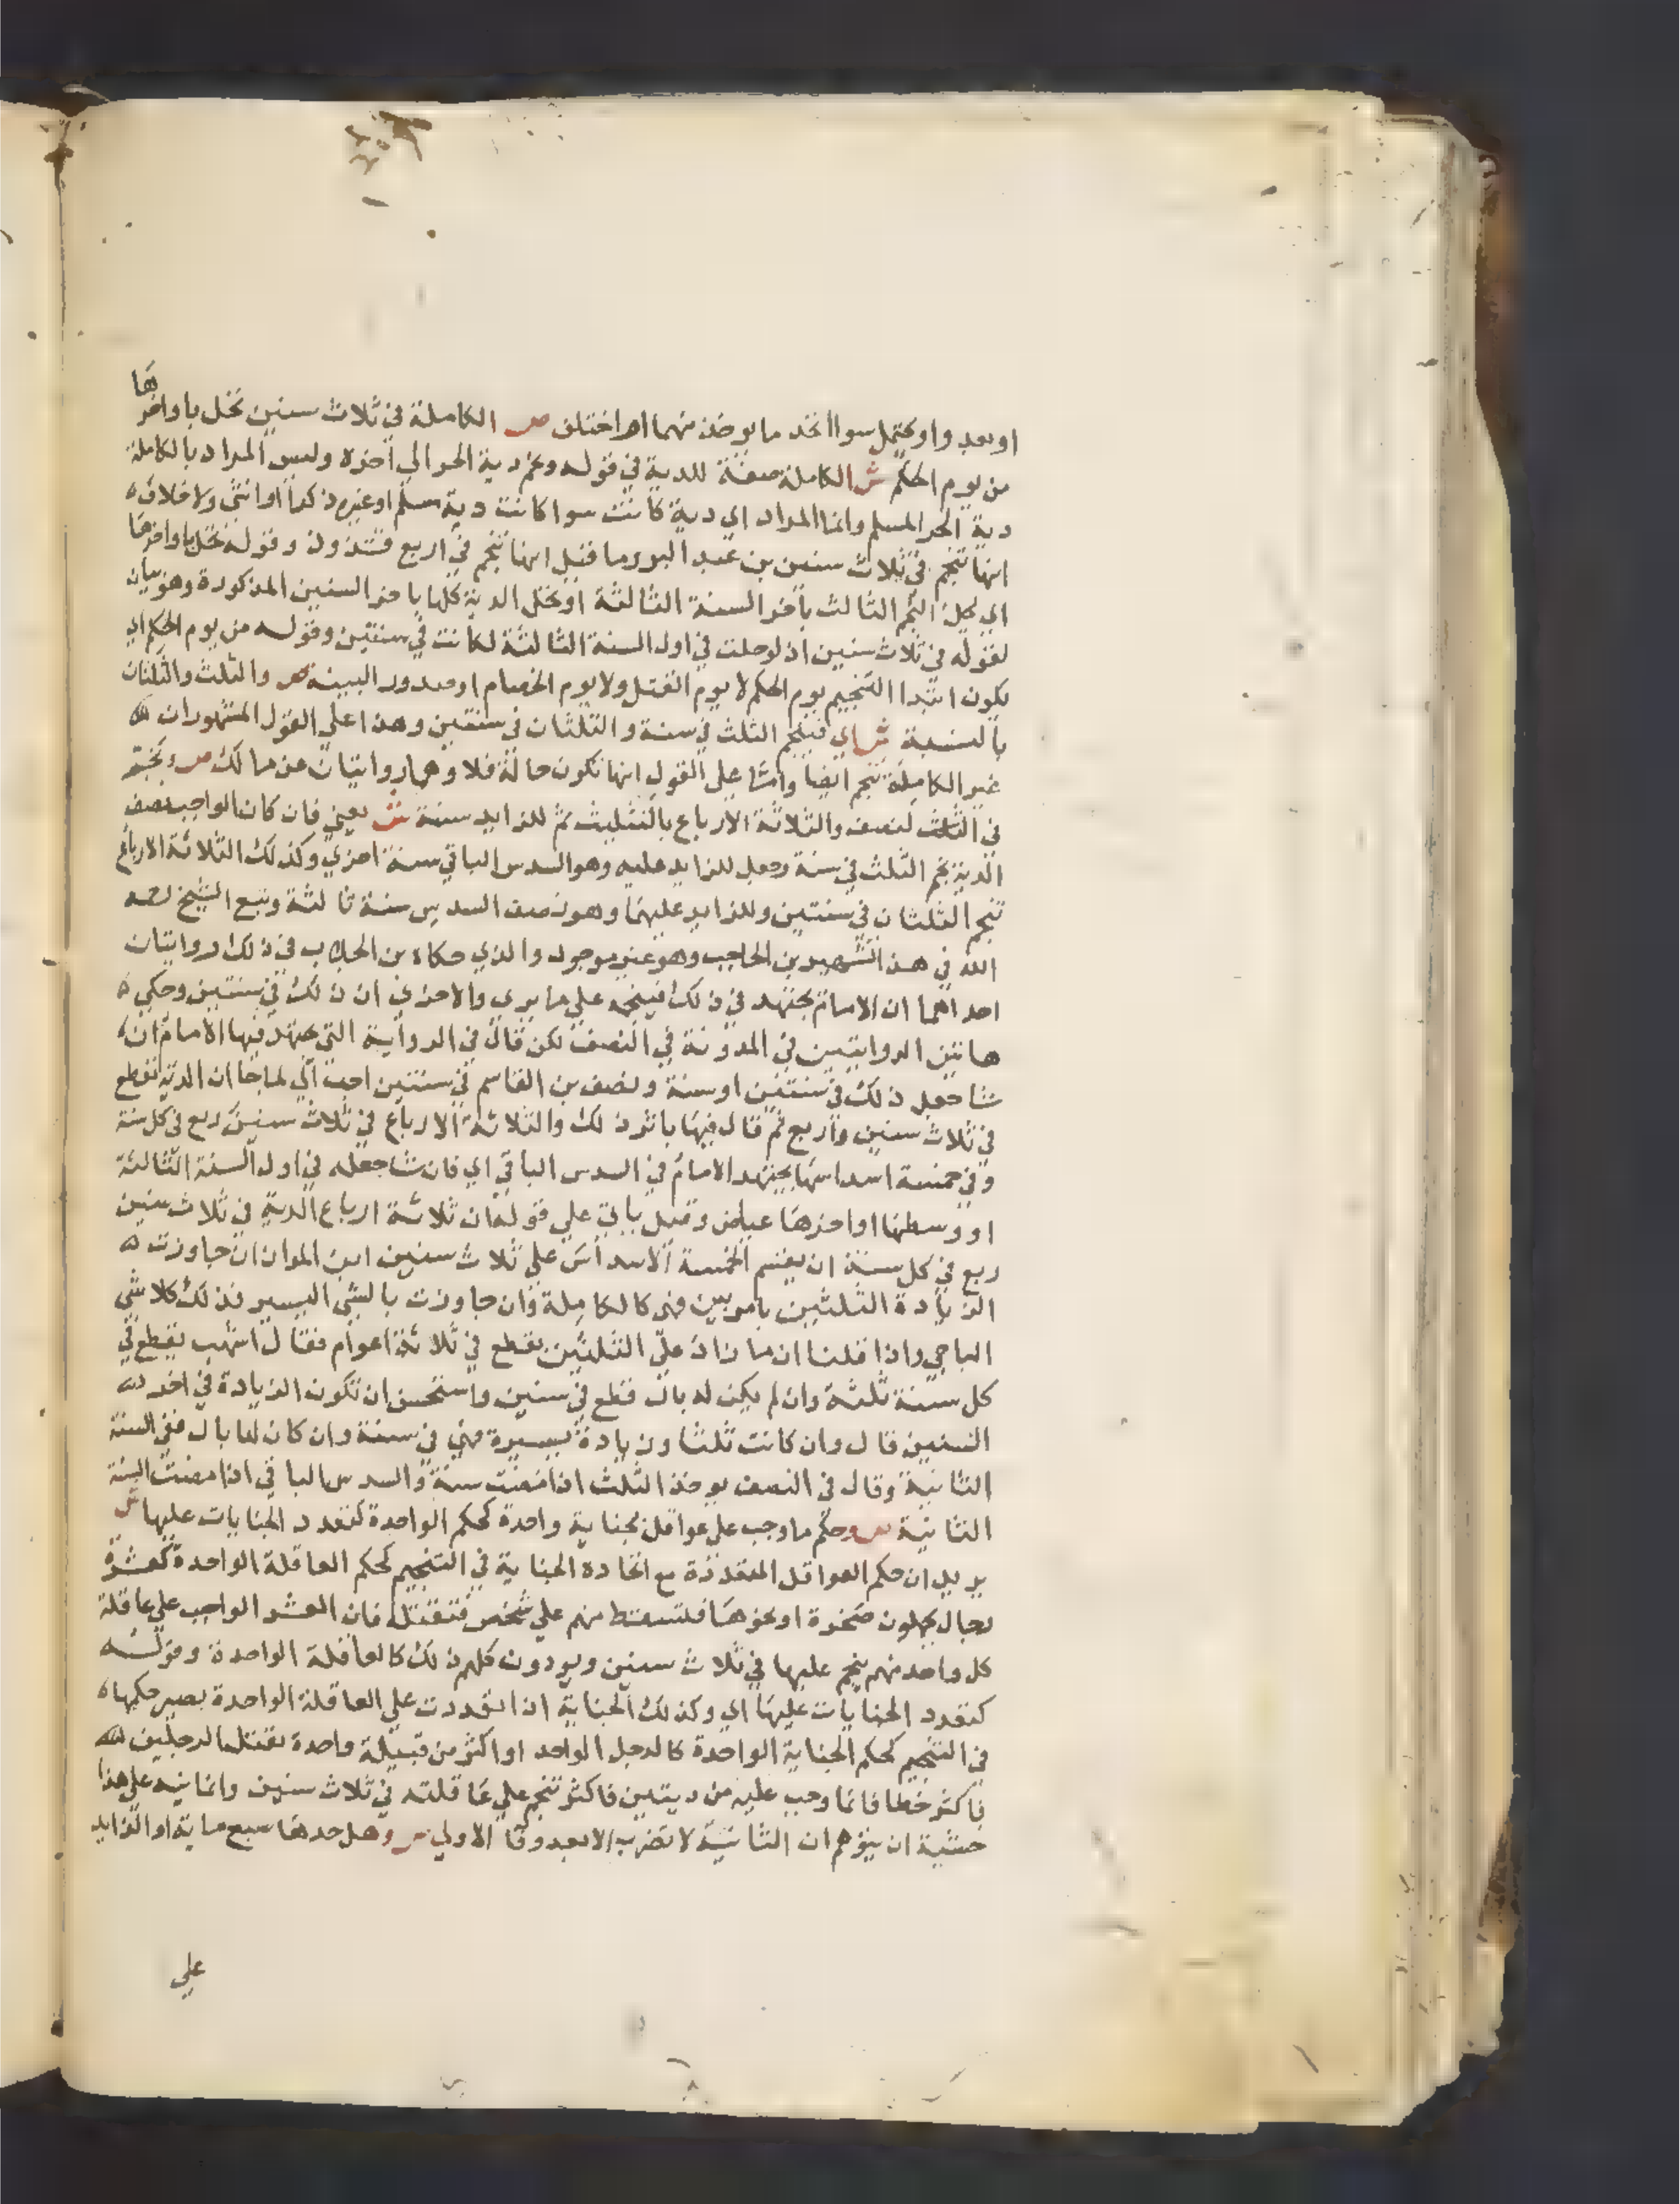 او بعد واو يحتمل سوا اتحد ما يوخذ منهما او اختلف ص الكاملة في ثلاث سنين تحل باواخرها
من يوم الحكم ش الكاملة صفة للدية في قوله ونجم دية الحر الي اخره وليس المراد بالكاملة
دية الحر المسلم وانما المراد اي دية كانت سوا كانت دية مسلم او غيره ذكرا او انثي ولا خلاف
انها تنجم في ثلاث سنين بن عبد البر وما قيل انها تنجم في اربع فشذوذ وقوله تحل باواخرها
اي يحل النجم الثالث باخر السنة الثالثة او تحل الدية كلها باخر السنين المذكورة وهو بيان
لقوله في ثلاث سنين اذ لو حلت في اول السنة الثالثة لكانت في سنتين وقوله من يوم الحكم اي
يكون ابتدا التنجيم يوم الحكم لا يوم القتل ولا يوم الخصام او صدور البينة ص والثلث والثلثان
بالنسبة ش اي فينجم الثلث في سنة والثلثان في سنتين وهذا علي القول المشهوران
غير الكاملة تنجم ايضا واما علي القول انها تكون حالة فلا وهما روايتان عن مالك ص ونجم
في الثلث لنصف والثلاثة الارباع بالتثليث ثم للزايد سنة ش يعني فان كان الواجب نصف
الدية نجم الثلث في سنة وجعل للزايد عليه وهو السدس الباقي سنة اخري وكذلك الثلاثة الارباع
تنجم الثلثان في سنتين وللزايد عليهما وهو نصف السدس سنة ثالثة وتبع الشيخ رحمه
الله في هذا التشهير بن الحاجب وهو غير موجود والذي حكاه بن الجلاب في ذلك روايتان
احداهما ان الامام يجتهد في ذلك فينجمه علي ما يري والاخري ان ذلك في سنتين وحكي
هاتين الروايتين في المدونة في النصف لكن قال في الرواية التي يجتهد فيها الامام ان
شا جعل ذلك في سنتين او سنة ونصف بن القاسم في سنتين احب الي لما جا ان الدية تقطع
في ثلاث سنين واربع ثم قال فيها باثر ذلك والثلاثة الارباع في ثلاث سنين ربع في كل سنة
وفي خمسة اسداسها يجتهد الامام في السدس الباقي اي فان شا جعله في اول السنة الثالثة
او وسطها او اخرها عياض وقيل ياتي علي قوله ان ثلاثة ارباع الدية في ثلاث سنين
ربع في كل سنة ان يقسم الخمسة الاسداس علي ثلاث سنين ابن المواز ان جاوزت
الزيادة الثلثين بامر بين فهي كالكاملة وان جاوزت بالشي اليسير فذلك كلا شي
الباجي واذا قلنا ان ما زاد علي الثلثين يقطع في ثلاثة اعوام فقال اشهب يقطع في
كل سنة ثلثه وان لم يكن له بال قطع في سنين واستحسن ان تكون الزيادة في اخر
السنين قال وان كانت ثلثا وزيادة يسيرة فهي في سنة وان كان لها بال ففي السنة
الثانية وقال في النصف يوخذ الثلث اذا مضت سنة والسدس الباقي اذا مضت السنة
الثانية ص وحكم ما وجب علي عواقل بجناية واحدة كحكم الواحدة كتعدد الجنايات عليها ش
يريد ان حكم العواقل المتعددة مع اتحاد الجناية في التنجيم كحكم العاقلة الواحدة كعشرة
رجال يحملون صخرة او نحوها فتسقط منهم علي شخص فتقتله فان العشر الواجب علي عاقلة
كل واحد منهم ينجم عليها في ثلاث سنين ويودون كلهم ذلك كالعاقلة الواحدة وقوله
كتعدد الجنايات عليها اي وكذلك الجناية اذا تعددت علي العاقلة الواحدة يصير حكمها
في التنجيم كحكم الجناية الواحدة كالرجل الواحد او اكثر من قبيلة واحدة يقتل الرجلين
فاكثر خطا فانما وجب عليه من ديتين فاكثر تنجم علي عاقلته في ثلاث سنين وانما نبه علي هذا
خشية ان يتوهم ان الثانية لا تضرب الا بعد وفا الاولي ص وهل حدها سبع ماية او الزايد
علي